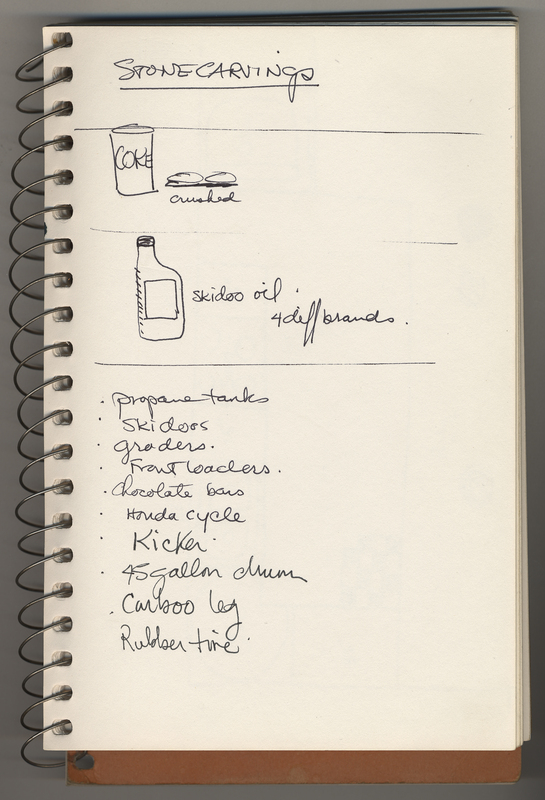 STONECARVINGS
COKE
crushed
skidoo oil.
4 diff brands.
· propane tanks
· Skidoos
· graders.
· Front loaders.
· chocolate bars
· Honda cycle
· Kicker
· 45 gallon drum
. Cariboo leg
Rubber tire